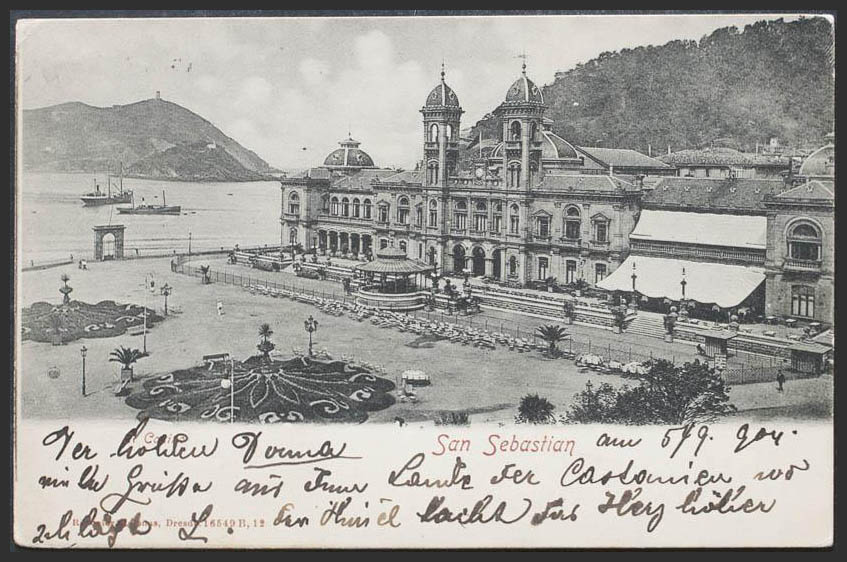 Casino
San Sebastian
Der holden Donna am 5/9. 904.
viele Grüße aus dem Lande der Castanien wo
R. Dresden 16549 B, 12 der Himmel lacht das Herz höher
schlägt L.